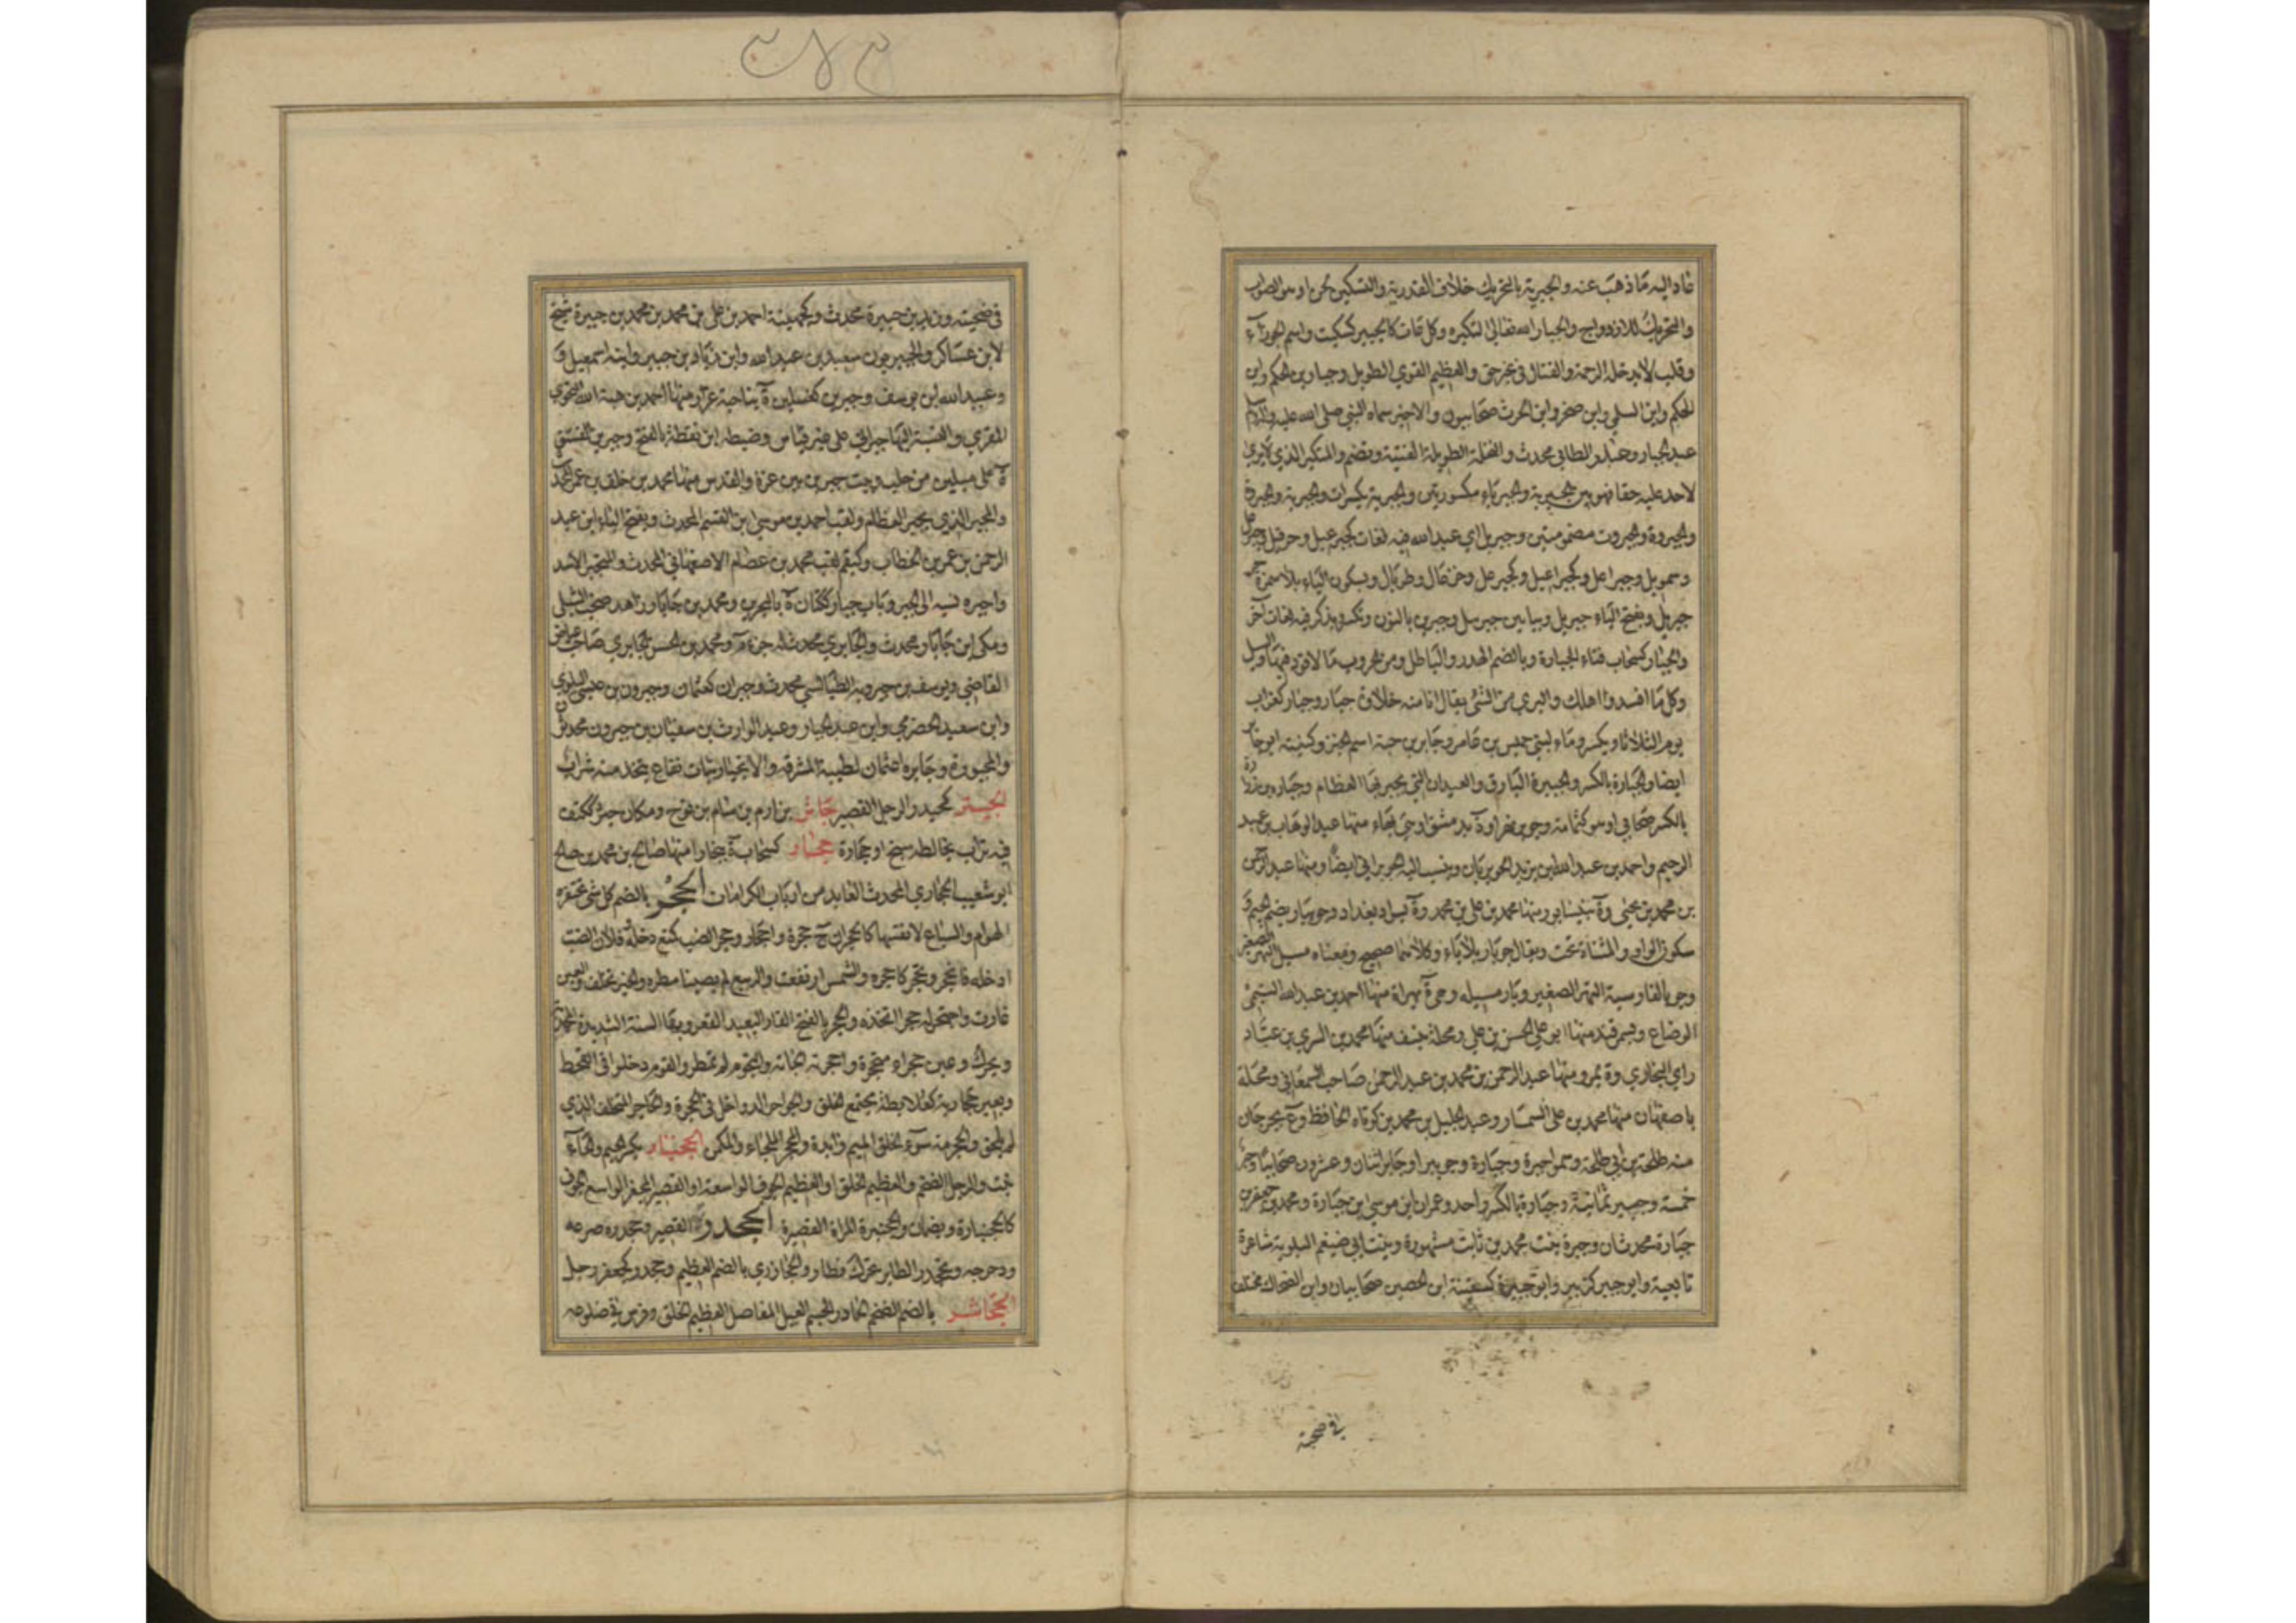 فاد اليه ما ذهب عنه والجبرية بالتحريك خلاف القدرية والتسكين لحن او هو الصواب
والتحريك للازدواج والجبار الله تعالى لتكبره وكل عات كالجبير كسكيت واسم الجوزاء
وقلب لا تدخله الرحمة والقتال في غير حق والعظيم القوي الطويل وجبار بن الحكم وابن
سلمى وابن صخر وابن الحرث صحابيون والاخير سماه النبي صلى الله عليه وسلم
عبد الجبار وجبار الطائي محدث والنخلة الطويلة الفتية وتضم والمتكبر الذي لا يرى
لاحد عليه حقا فهو بين الجبرية والجبرياء مكسورتين والجبرية بكسرات والجبرية والجبروة
والجبروة والجبروت مضمومتين وجبريل اي عبد الله فيه لغات كجبرعيل وحزقيل وجبرعل
وسمويل وجبراعل وجبراعيل وجبرعل وخزعال وطربال وبسكون الياء بلا همز
جبريل وبفتح الياء جبريل وبياءين جبرييل وجبرين بالنون وتكسر ويذكر فيه لغات اخر
والجبار كسحاب فناء الجبانة وبالضم الهدر والباطل ومن الحروب ما لا قود فيها والسيل
وكل ما افسد واهلك والبري من الشئ يقال انا منه خلاوة جبار وجبار كغراب
يوم الثلاثاء ويكسر وماء لبني حميس بن عامر وجابر بن حبة اسم الخبز وكنيته ابو جابر
ايضا والجبارة بالكسر والجبيرة اليارق والعيدان التي يجبر بها العظام وجبارة بن زرارة
بالكسر صحابي او هو كثمامة وجوبر نهر او ة بدمشق او هي بهاء منها عبد الوهاب بن عبد
الرحيم واحمد بن عبد الله بن يزيد الجوبريان وينسب اليه الجوبراني ايضا ومنها عبد الرحمن
بن محمد بن يحيى وة بنيسابور منها محمد بن علي بن محمد وة بسواد بغداد وجويبار بضم الجيم و
سكون الواو والمثناة تحت ويقال جوبار بلا ياء وكلاهما صحيح ومعناه مسيل النهر الصغير
وجو بالفارسية النهر الصغير وبار مسيله وهي ة بهراة منها احمد بن عبد الله التيمي
الوضاع وبسمرقند منها ابو علي الحسن بن علي ومحلة بنسف منها محمد بن السري بن عباد
راي البخاري وة بمرو منها عبد الرحمن بن محمد بن عبد الرحمن صاحب السمعاني ومحلة
باصفهان منها محمد بن علي السمسار وعبد الجليل بن محمد بن كوتاه الحافظ وع بجرجان
منه طلحة بن ابي طلحة وسموا جبرة وجبارة وجويبرا وجابر اثنان وعشرون صحابيا وجبر
خمسة وجبير ثمانية وجبارة بالكسر واحد وعمران ابن موسى ابن جبارة ومحمد بن جعفر بن
جبارة محدثان وجبرة بنت محمد بن ثابت مشهورة وبنت ابي ضيغم البلوية شاعرة
تابعية وابو جبير كزبير وابو جبيرة كسفينة ابن الحصين صحابيان وابن الضحاك مختلف
في صحبته
في صحبته وزيد بن جبيرة محدث وكجهينة احمد بن علي بن محمد بن محمد بن جبيرة شيخ
لابن عساكر والجبيريون سعيد بن عبد الله وابن زياد بن جبير وابنه اسمعيل و
وعبيد الله ابن يوسف وجبرين كغسلين ة بناحية عزاز منها احمد بن هبة الله النحوي
المقري والنسبة اليها جبراني على غير قياس وضبطه ابن نقطة بالفتح وجبرين الفستق
ة على ميلين من حلب وبيت جبرين بين غزة والقدس منها محمد بن خلف بن عمر المحدث
والمجبر الذي يجبر العظام ولقب احمد بن موسى ابن القسم المحدث وبفتح الباء ابن عبد
الرحمن بن عمر بن الخطاب وكبقم لقب محمد بن عصام الاصفهاني المحدث والمتجبر الاسد
واجبره نسبه الى الجبر وباب جبار ككتان ة بالبحرين ومحمد بن جابار زاهد صحب الشبلي
ومكي ابن جابار محدث والجابري محدث له جزء م ومحمد بن الحسن الجابري صاحب عياض
القاضي ويوسف بن جبرويه الطيالسي محدث وجبران كعثمان وجبرون بن عيسى البلوي
وابن سعيد الحضرمي وابن عبد الجبار وعبد الوارث بن سفيان بن جبرون محدثون
والمجبورة وجابرة اسمان لطيبة المشرفة والانجبار نبات نفاع يتخذ منه شراب
الجيتر كحيدر الرجل القصير جاثر بن ارم بن سام بن نوح ومكان جثر ككتف
فيه تراب يخالطه سبخ او حجارة ججار كسحابة ة ببخارا منها صالح بن محمد بن صالح
ابو شعيب الججاري المحدث العابد من ارباب الكرامات الجحر بالضم كل شئ تحتفره
الهوام والسباع لانفسها كالجحران ج جحرة واجحار وجحر الضب كمنع دخله فلان الضب
ادخله فانجحر وتجحر كاجحره والشمس ارتفعت والربيع لم يصبنا مطره والخير تخلف والعين
غارت واجتحر له جحرا اتخذه والجحر بالفتح الغار البعيد القعر وبهاء السنة الشديدة المجدبة
ويحرك وعين جحراء متجحرة واجحرته الجاته والنجوم لم تمطر والقوم دخلوا في القحط
وبعير جحارية كعلابطة مجتمع الخلق والجواحر الدواخل في الجحرة والجاحر المتخلف الذي
لم يلحق والجحرمة سوء الخلق الميم زائدة والمجحر الملجاء والمكمن الجحنبار بكسر الجيم والحاء
نبت والرجل الضخم والعظيم الخلق او العظيم الجوف الواسعة او القصير المجفر الواسع الجوف
كالجحنبارة ويضمان والجحنبرة المراة القصيرة الجحدر القصير وجحدره صرعه
ودحرجه وتجحدر الطاير تحرك فطار والجحادري بالضم العظيم وجحدر كجعفر رجل
الجحاشر بالضم الضخم الحادر الجسم العبل المفاصل العظيم الخلق وفرس في ضلوعه